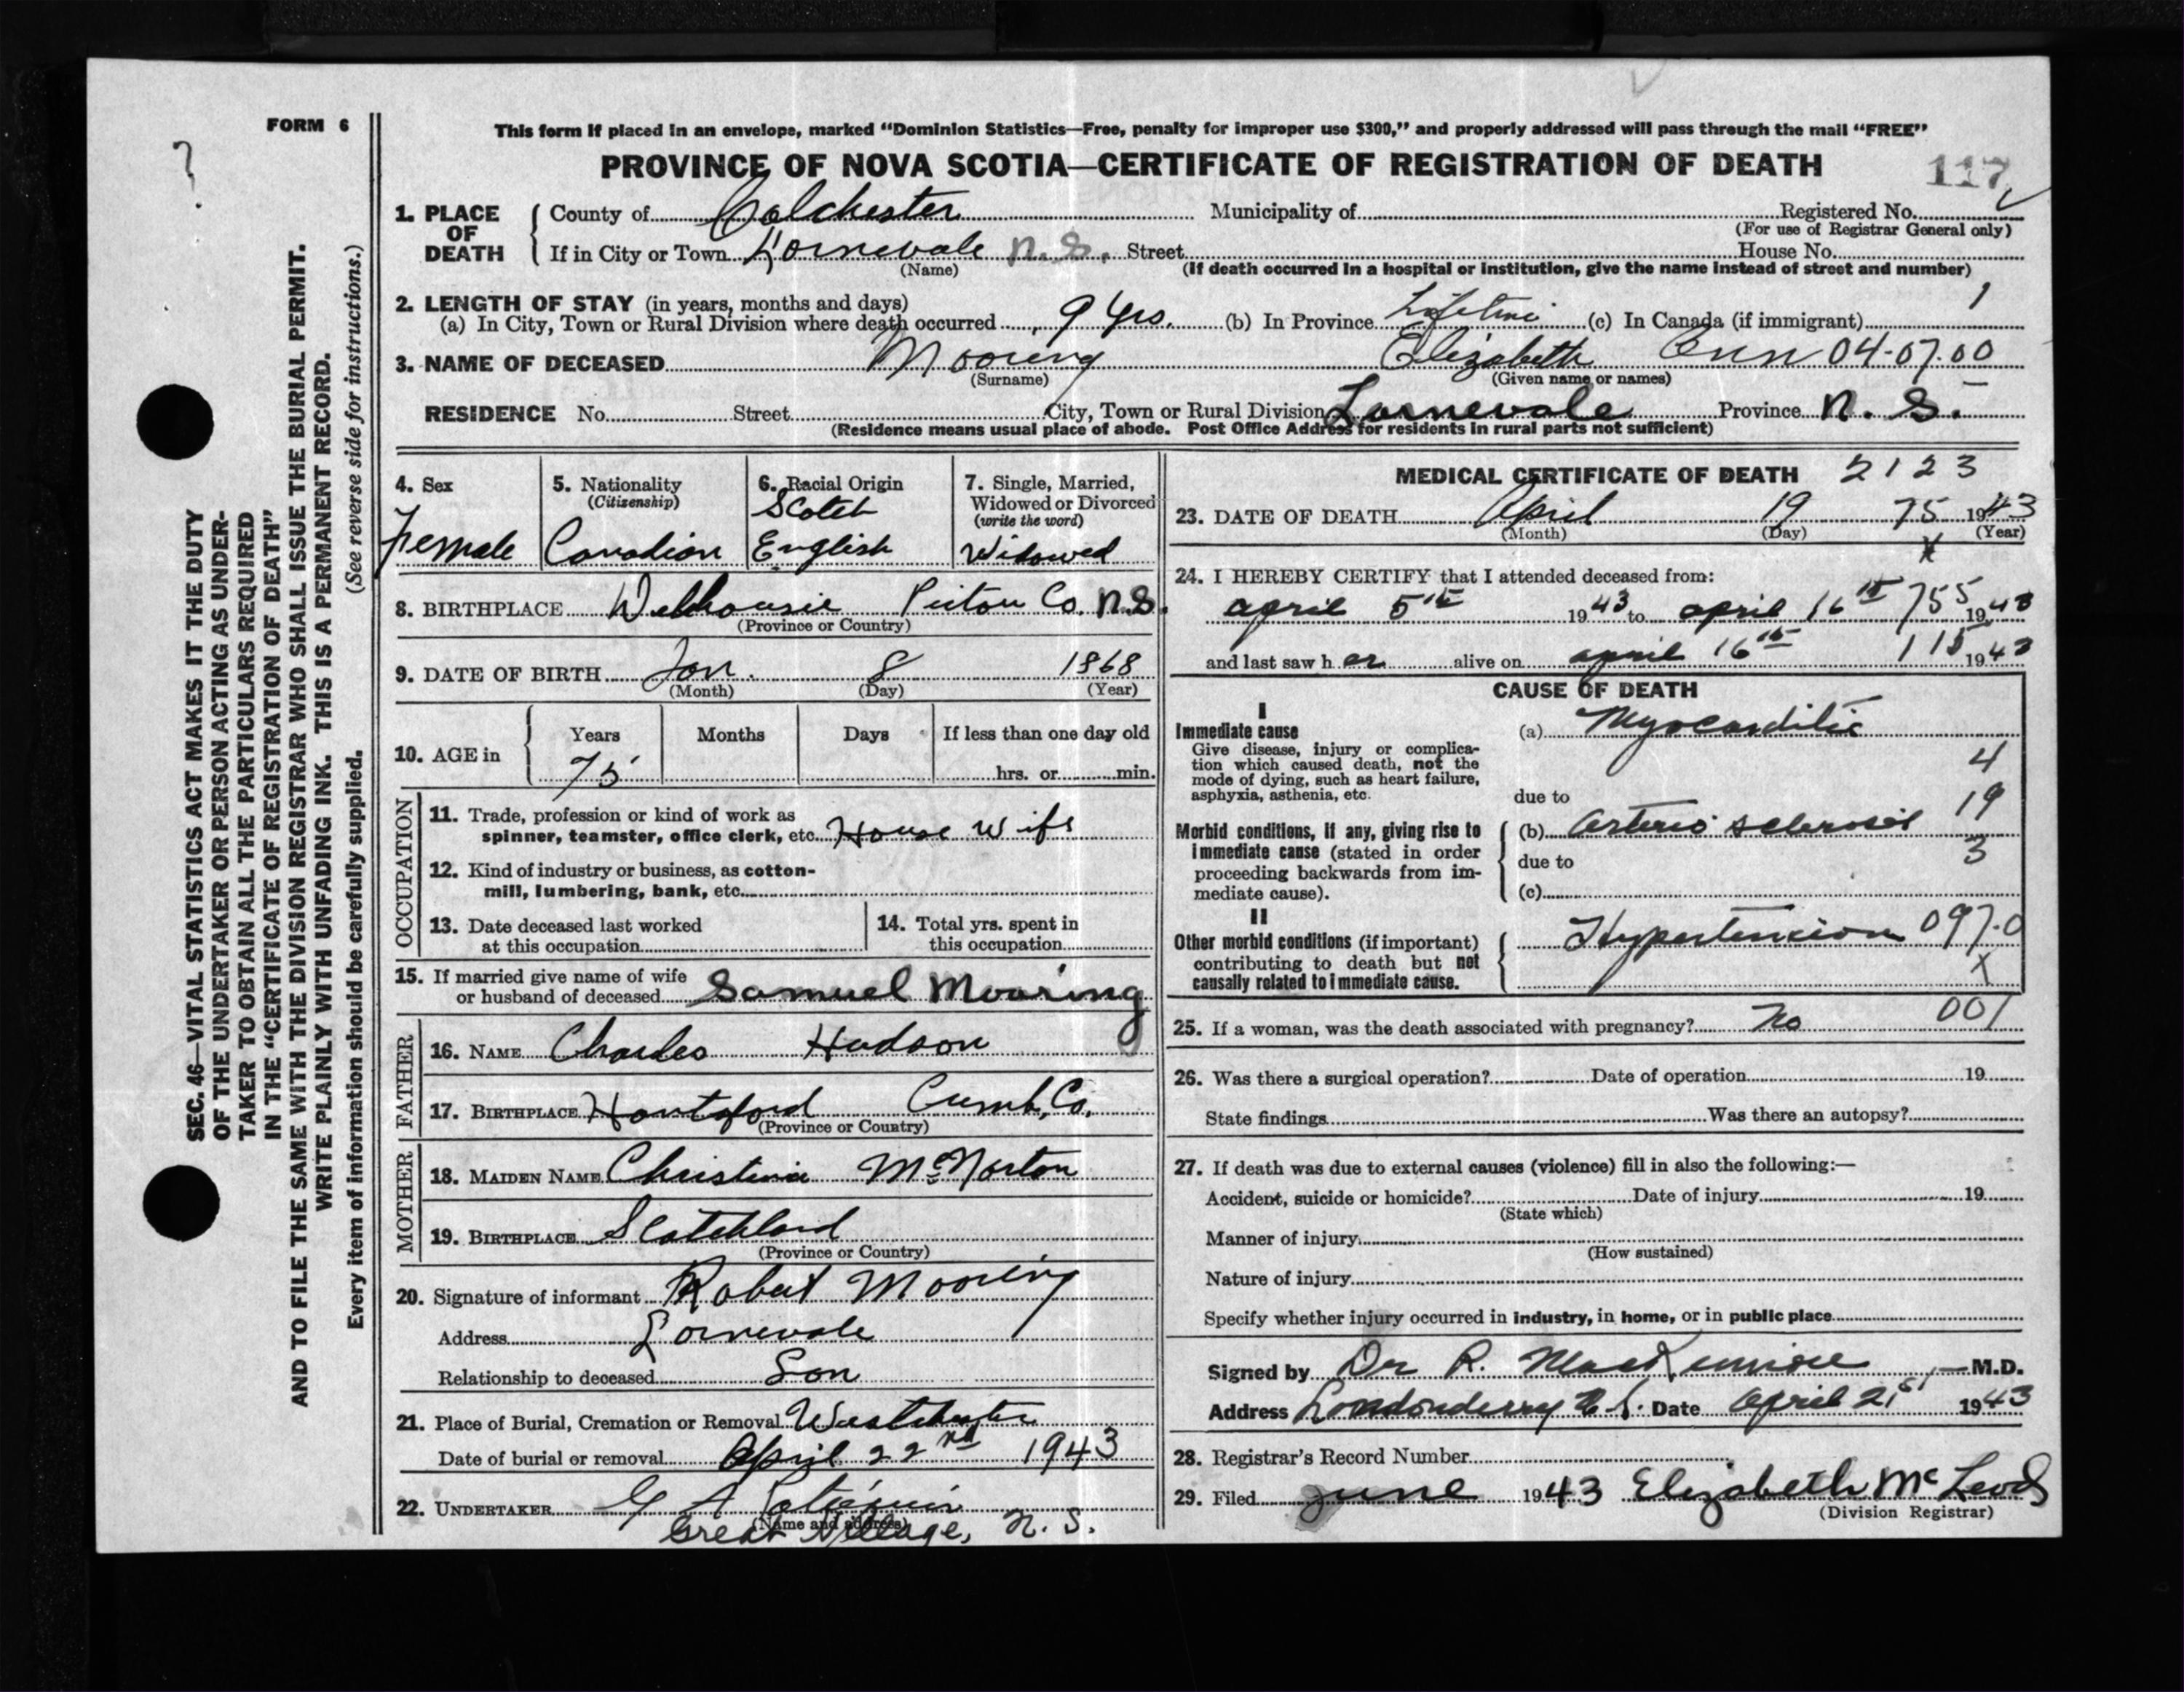 FORM 6
This form if placed in an envelope, marked "Dominion Statistics—Free, penalty for improper use $300," and properly addressed will pass through the mail "FREE"
PROVINCE OF NOVA SCOTIA—CERTIFICATE OF REGISTRATION OF DEATH
117
?
SEC. 46—VITAL STATISTICS ACT MAKES IT THE DUTY
OF THE UNDERTAKER OR PERSON ACTING AS UNDER-
TAKER TO OBTAIN ALL THE PARTICULARS REQUIRED
IN THE "CERTIFICATE OF REGISTRATION OF DEATH"
AND TO FILE THE SAME WITH THE DIVISION REGISTRAR WHO SHALL ISSUE THE BURIAL PERMIT.
WRITE PLAINLY WITH UNFADING INK. THIS IS A PERMANENT RECORD.
Every item of information should be carefully supplied. (See reverse side for instructions.)
1. PLACE OF DEATH County of Colchester Municipality of Registered No.
(For use of Registrar General only)
If in City or Town Lornevale N.S. Street House No.
(Name) (If death occurred in a hospital or institution, give the name instead of street and number)
2. LENGTH OF STAY (in years, months and days) 1
(a) In City, Town or Rural Division where death occurred 9 yrs. (b) In Province Lifetime (c) In Canada (if immigrant)
3. NAME OF DECEASED Mooring Elizabeth Ann 04-07.00
(Surname) (Given name or names)
RESIDENCE No. Street City, Town or Rural Division Lornevale Province N. S.
(Residence means usual place of abode. Post Office Address for residents in rural parts not sufficient)
4. Sex
Female
5. Nationality
(Citizenship)
Canadian
6. Racial Origin
Scotch
English
7. Single, Married,
Widowed or Divorced
(write the word)
Widowed
8. BIRTHPLACE Pictou Co. N.S.
(Province or Country)
9. DATE OF BIRTH Jan. 8 1868
(Month) (Day) (Year)
10. AGE in Years Months Days If less than one day old
75 hrs. or min.
OCCUPATION
11. Trade, profession or kind of work as
spinner, teamster, office clerk, etc. House Wife
12. Kind of industry or business, as cotton-
mill, lumbering, bank, etc.
13. Date deceased last worked
at this occupation
14. Total yrs. spent in
this occupation
15. If married give name of wife
or husband of deceased Samuel Mooring
FATHER
16. NAME Charles Hudson
17. BIRTHPLACE Hantsford Cumb. Co.
(Province or Country)
MOTHER
18. MAIDEN NAME Christina McNorton
19. BIRTHPLACE Scotchland
(Province or Country)
20. Signature of informant Robert Mooring
Address Lornevale
Relationship to deceased Son
21. Place of Burial, Cremation or Removal Westchester
Date of burial or removal April 22nd 1943
22. UNDERTAKER G A
(Name and address)
Great Village, N. S.
MEDICAL CERTIFICATE OF DEATH 2123
23. DATE OF DEATH April 19 75 1943
(Month) (Day) (Year)
X
24. I HEREBY CERTIFY that I attended deceased from:
April 5th 1943 to April 16th 755 1943
and last saw her alive on April 16th 115 1943
CAUSE OF DEATH
I
Immediate cause
Give disease, injury or complica-
tion which caused death, not the
mode of dying, such as heart failure,
asphyxia, asthenia, etc.
(a) Myocarditis
4
due to
Morbid conditions, if any, giving rise to
immediate cause (stated in order
proceeding backwards from im-
mediate cause).
(b) Arterio sclerosis 19
due to 3
(c)
II
Other morbid conditions (if important)
contributing to death but not
causally related to immediate cause.
Hypertension 097.0
X
25. If a woman, was the death associated with pregnancy? No 001
26. Was there a surgical operation? Date of operation 19
State findings Was there an autopsy?
27. If death was due to external causes (violence) fill in also the following:—
Accident, suicide or homicide? Date of injury 19
(State which)
Manner of injury
(How sustained)
Nature of injury
Specify whether injury occurred in industry, in home, or in public place
Signed by Dr R. MacKenzie M.D.
Address Londonderry N.S. Date April 21st 1943
28. Registrar's Record Number
29. Filed June 1943 Elizabeth McLeod
(Division Registrar)